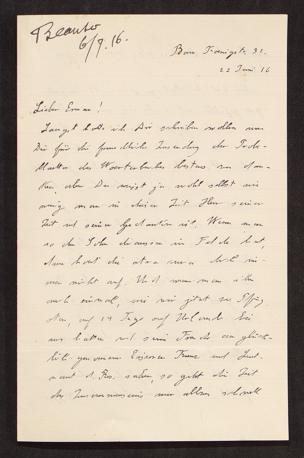 Beantw
6/9. 16.
Bonn, Königstr. 32.
22 Juni 16
Lieber Erman!
Längst hatte ich Dir schreiben wollen um
Dir für die freundliche Zusendung der Probe-
blätter des Wörterbuches bestens zu dan-
ken, aber Du weisst ja wohl selbst wie
wenig man in dieser Zeit Herr seiner
Zeit und seiner Gedanken ist. Wenn man
so die Söhne draussen im Felde hat,
dann hört die
nicht auf. Und wenn man ihn
noch einmal, wie wir jetzt zu Pfing-
sten auf 14 Tage auf Urlaub bei
uns hatten und seine Freude am glück-
lich gewonnenen Eisernen Kreuz und Leut-
nant d. Res. sahen, so geht die Zeit
des Zusammenseins nur allzu schnell